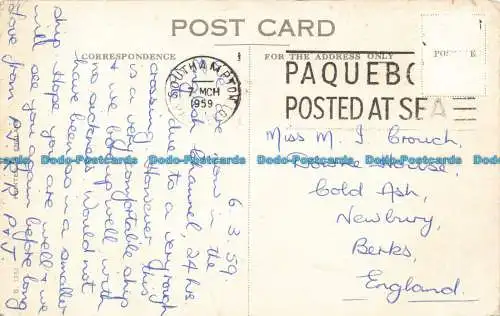 POST CARD
CORRESPONDENCE
FOR THE ADDRESS ONLY
SOUTHAMPTON
7 MCH
1959
PAQUEBO
POSTED AT SEA
6.3.59.
We are now in the
English Channel, 24 hrs
late due to a very rough
crossing. However this
is a very comfortable ship
& we have been well with
no sickness. Would not
have been so in a smaller
ship. Hope you are well & we
will see you again before long
Love from
P & J.
Miss M. J. Crouch,
House,
Cold Ash,
Newbury,
Berks,
England.
Oldthing-Postcards